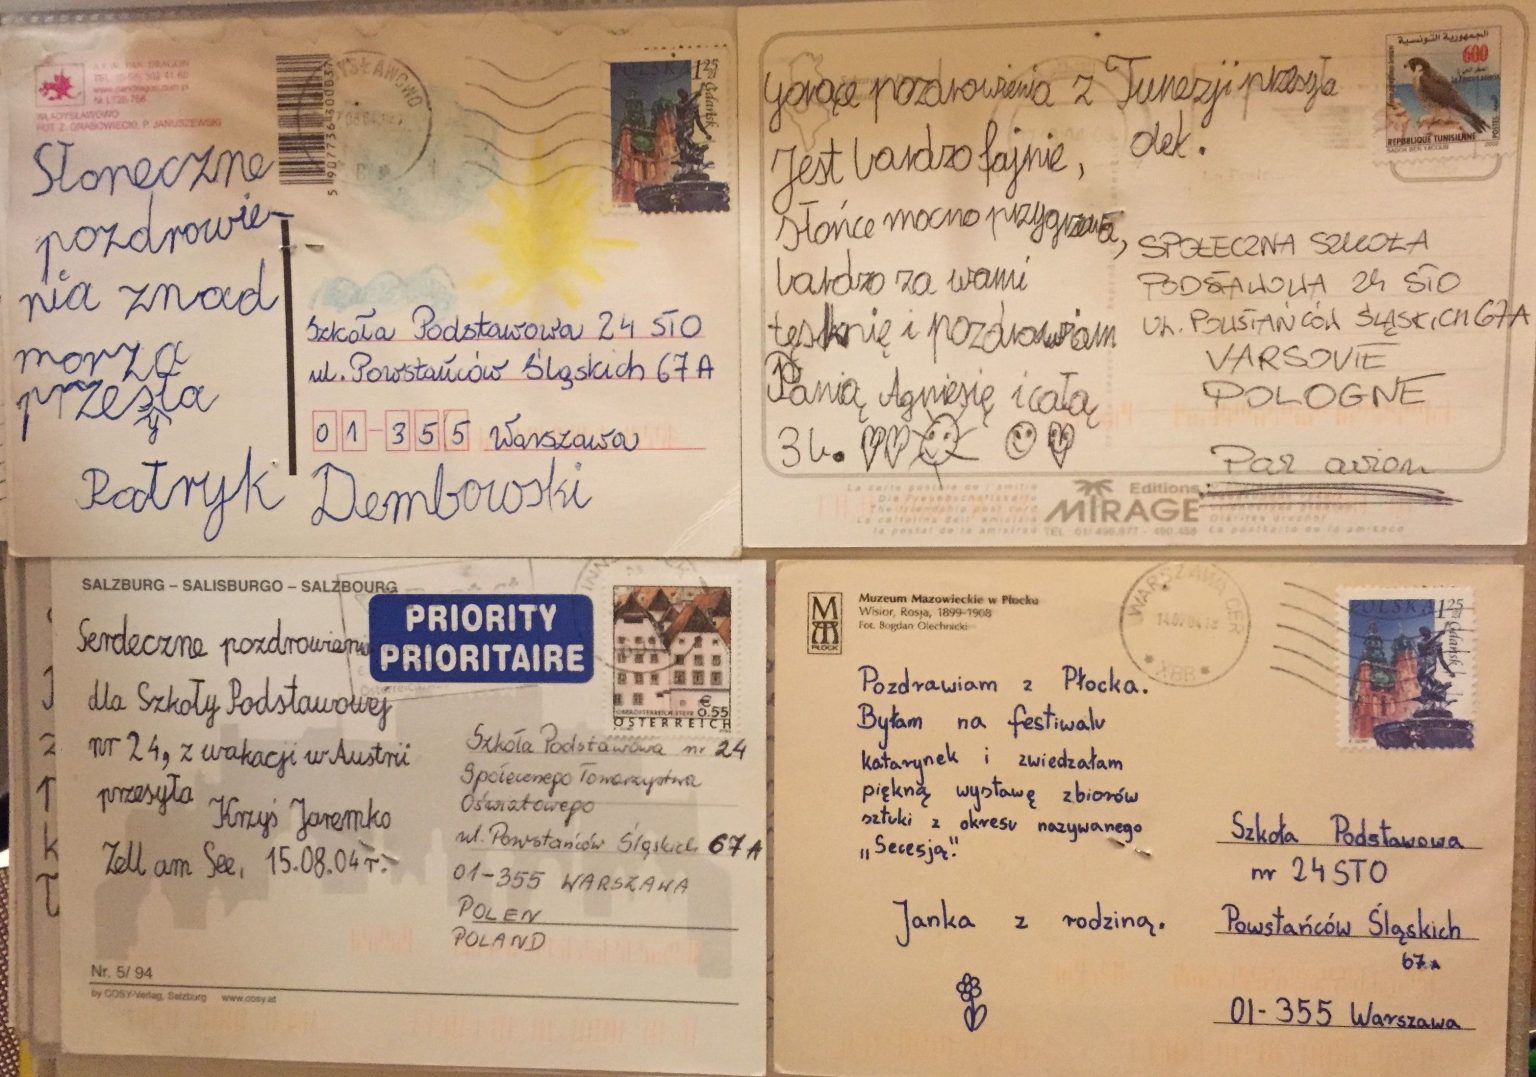 A.F.W. PAN DRAGON
www.pandragon.com.pl
WŁADYSŁAWOWO
FOT. Z. GRABOWIECKI, P. JANUSZEWSKI
POLSKA 1 25 zł
Gdańsk
Słoneczne
pozdrowie-
nia znad
morza
przesła
y
Patryk Dembowski
Szkoła Podstawowa 24 STO
ul. Powstańców Śląskich 67A
01-355 Warszawa
Gorące pozdrowienia z Tunezji przesyła
Olek.
Jest bardzo fajnie,
słońce mocno przygrzewa,
bardzo za wami
tęsknię i pozdrawiam
Panią Agnieszkę i całą
3b.
الجمهورية التونسية
600
REPUBLIQUE TUNISIENNE
SPOŁECZNA SZKOŁA
PODSTAWOWA 24 STO
UL. POWSTAŃCÓW ŚLĄSKICH 67A
VARSOVIE
POLOGNE
Par avion
Editions
MIRAGE
SALZBURG – SALISBURGO – SALZBOURG
PRIORITY
PRIORITAIRE
€ 0,55
ÖSTERREICH
Serdeczne pozdrowienia
dla Szkoły Podstawowej
nr 24, z wakacji w Austrii
przesyła
Krzyś Jaremko
Zell am See, 15.08.04 r.
Szkoła Podstawowa nr 24
Społecznego Towarzystwa
Oświatowego
ul. Powstańców Śląskich 67A
01-355 WARSZAWA
POLEN
POLAND
Nr. 5/ 94
by COSY-Verlag, Salzburg www.cosy.at
Muzeum Mazowieckie w Płocku
Wisior, Rosja, 1899-1908
Fot. Bogdan Olechnicki
PŁOCK
WARSZAWA CER
POLSKA 1 25 zł
Gdańsk
Pozdrawiam z Płocka.
Byłam na festiwalu
katarynek i zwiedzałam
piękną wystawę zbiorów
sztuki z okresu nazywanego
„Secesją".
Janka z rodziną.
Szkoła Podstawowa
nr 24 STO
Powstańców Śląskich
67A
01-355 Warszawa